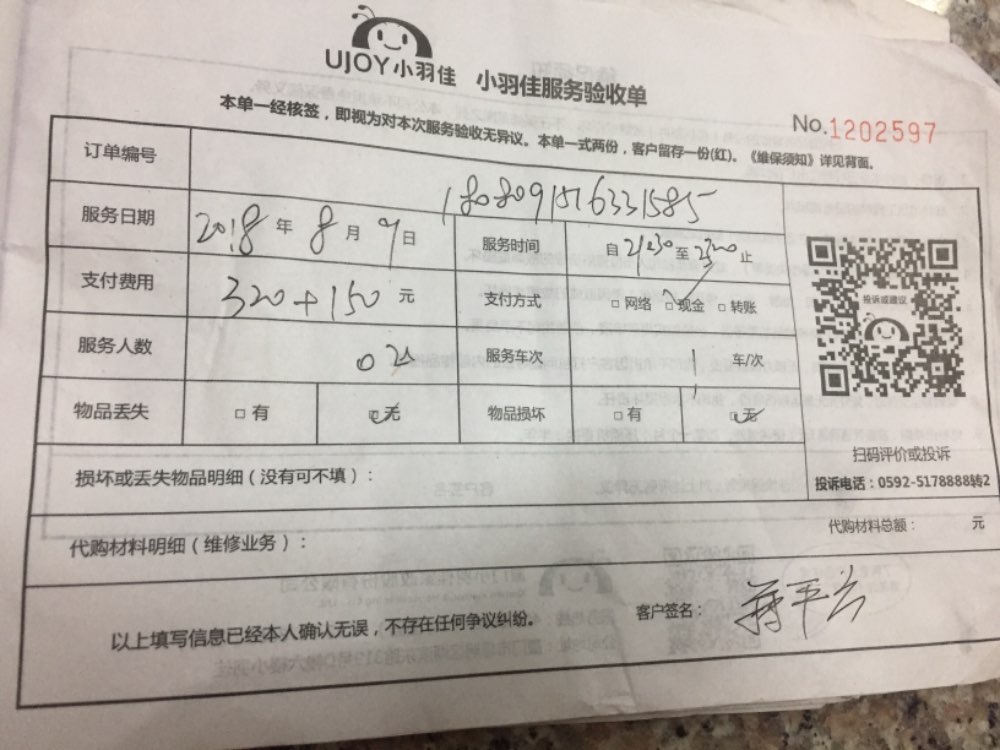 UJOY小羽佳 小羽佳服务验收单
No.1202597
本单一经核签，即视为对本次服务验收无异议。本单一式两份，客户留存一份(红)。《维保须知》详见背面。
订单编号 1808091516331585
服务日期 2018年8月9日 服务时间 自21:30至2320止
支付费用 320+150元 支付方式 □网络 □现金 □转账
投诉或建议
服务人数 02 服务车次 1 车/次
物品丢失 □有 □无 物品损坏 □有 □无
扫码评价或投诉
损坏或丢失物品明细（没有可不填）：
投诉电话：0592-5178888转2
代购材料明细（维修业务）： 代购材料总额： 元
以上填写信息已经本人确认无误，不存在任何争议纠纷。 客户签名：